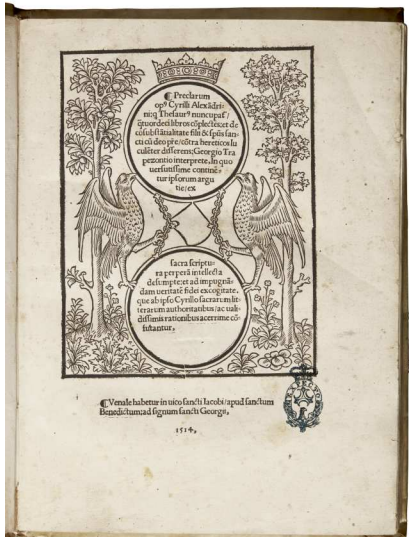 ¶Preclarum
opꝰ Cyrilli Alexādri-
ni:q Thesaurꝰ nuncupat/
quatuordecī libros cōplectēs:et de
cōsubstātialitate filii & spūs san-
cti cū deo pre/cōtra hereticos lu
culēter disserens: Georgio Tra
pezontio interprete. In quo
versutissime contine-
tur ipsorum argu
tie/ex
sacra scriptu-
ra perperā intellecta
desumpte:et ad impugnā-
dam ueritatē fidei excogitate,
que ab ipso Cyrillo sacrarum lit-
terarum authoritatibus/ac uali-
dissimis rationibus acerrime cō-
futantur.
¶Venale habetur in uico sancti Iacobi/apud sanctum
Benedictum:ad signum sancti Georgii.
1514.